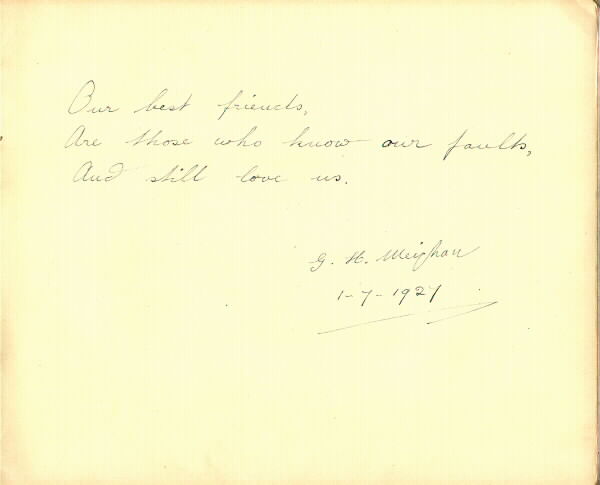 Our best friends,
Are those who know our faults,
And still love us.
G. H. Meighan
1-7-1927